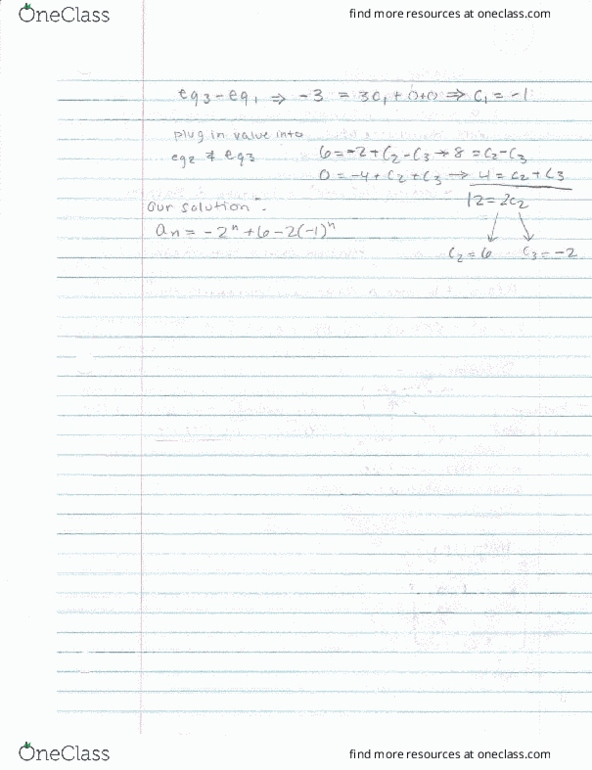 OneClass
find more resources at oneclass.com
eq3 - eq1 ⇒ -3 = 3c₁ + 0+0 ⇒ c₁ = -1
plug in value into
eq2 & eq3
6 = -2 + c₂ - c₃ → 8 = c₂ - c₃
0 = -4 + c₂ + c₃ → 4 = c₂ + c₃
12 = 2c₂
c₂ = 6 c₃ = -2
Our solution:
aₙ = -2ⁿ + 6 - 2(-1)ⁿ
OneClass
find more resources at oneclass.com